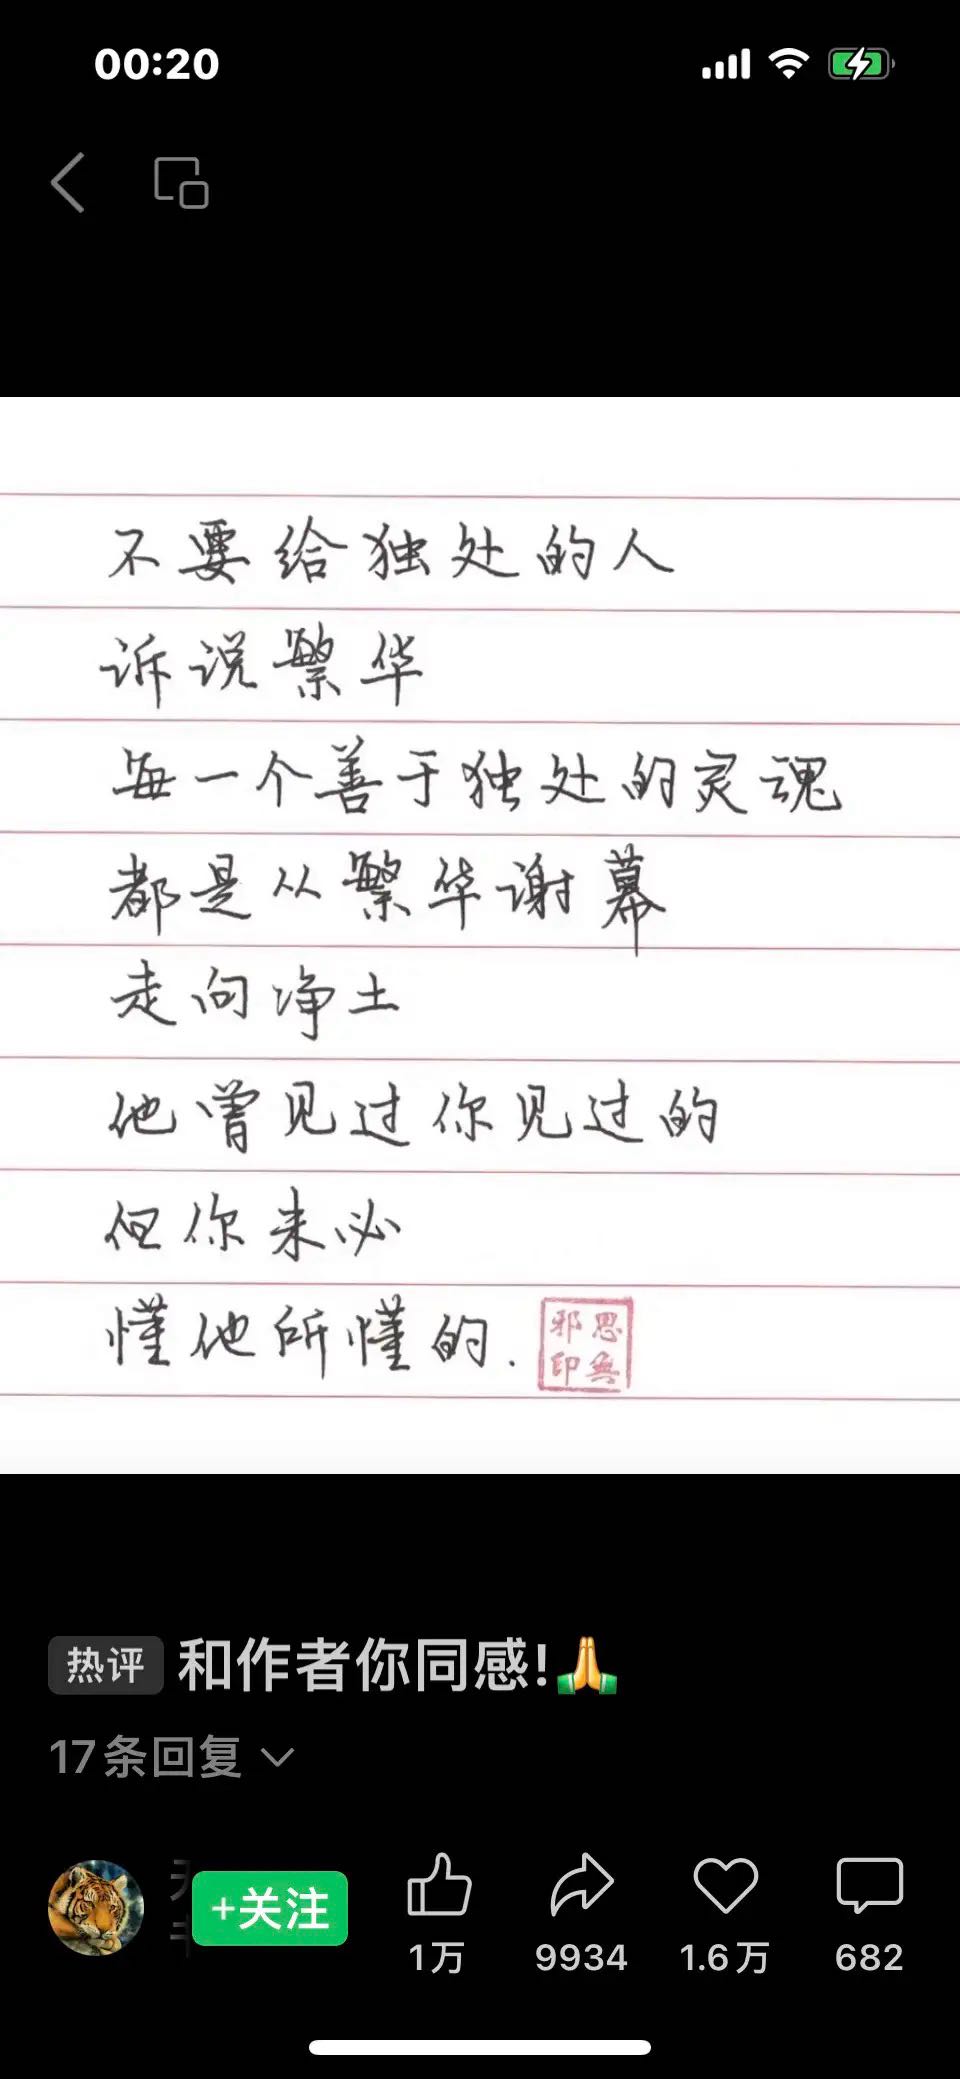 00:20
不要给独处的人
诉说繁华
每一个善于独处的灵魂
都是从繁华谢幕
走向净土
他曾见过你见过的
但你未必
懂他所懂的.
思無邪印
热评 和作者你同感!🙏
17条回复
+关注
1万
9934
1.6万
682